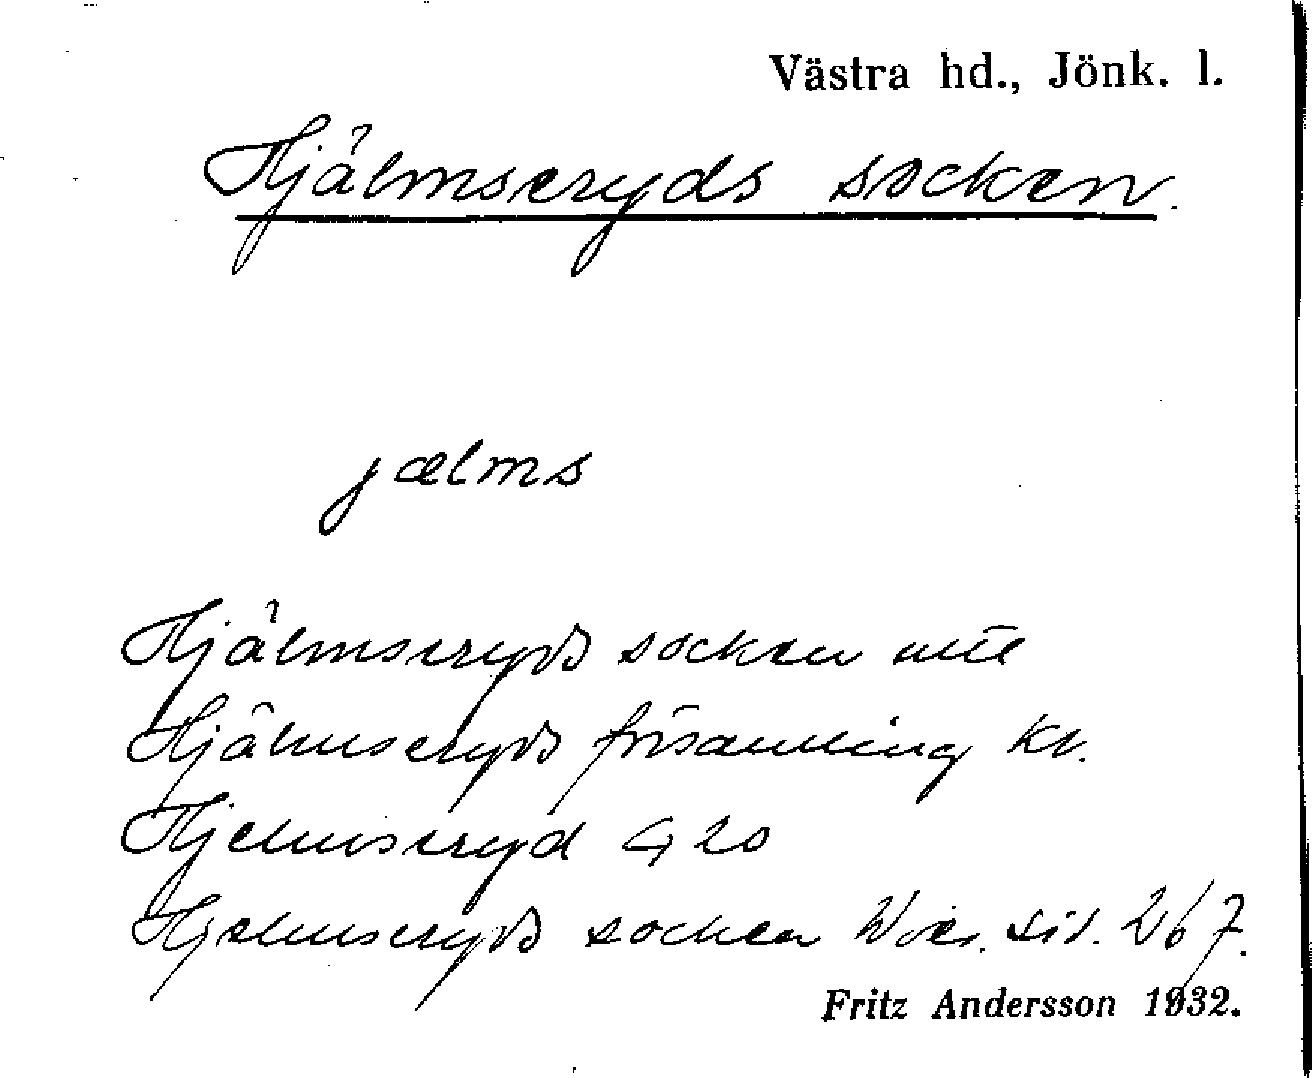 Västra hd., Jönk. l.
Hjälmseryds socken.
jælms
Hjälmseryds socken
Hjälmseryds församling kr.
Hjelmseryd G 20
Hjelmseryds socken Wies. sid. 267.
Fritz Andersson 1932.